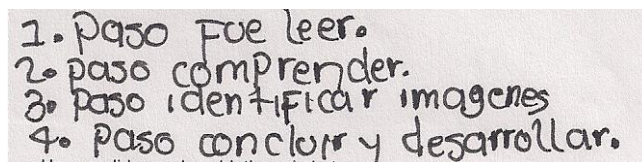 1. Paso Fue leer.
2. paso comprender.
3. Paso identificar imagenes
4. Paso concluir y desarrollar.